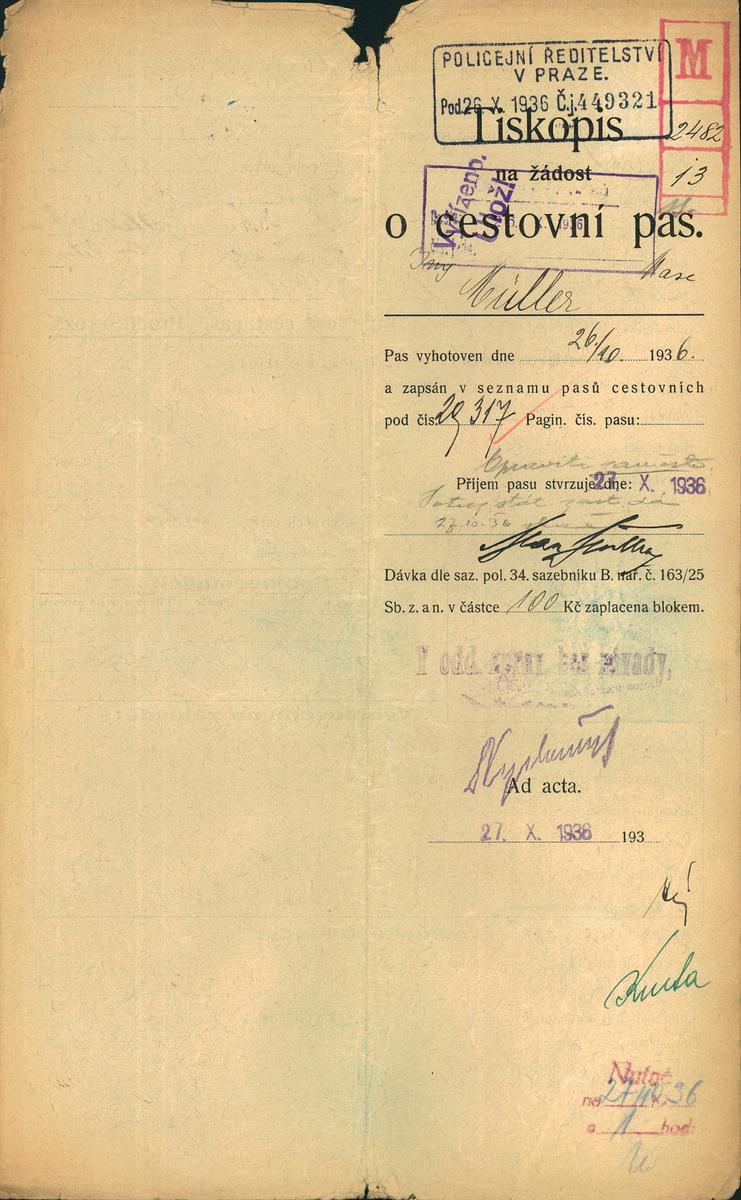 POLICEJNÍ ŘEDITELSTVÍ
V PRAZE.
Pod. 26 X. 1936 Č.j. 449321
M
2482
13
Tiskopis
na žádost
Vyřízeno.
Uložit
o cestovní pas.
Müller
Pas vyhotoven dne 26/10. 1936.
a zapsán v seznamu pasů cestovních
pod čís. 29317 Pagin. čís. pasu:
Příjem pasu stvrzuje dne: 27. X. 1936
27.10.36
Dávka dle saz. pol. 34. sazebníku B. nař. č. 163/25
Sb. z. a n. v částce 100 Kč zaplacena blokem.
V odd. zpráv. bez závady,
Ad acta.
27. X. 1936 193
Nutné
na 27/10.36
o 1 hod: